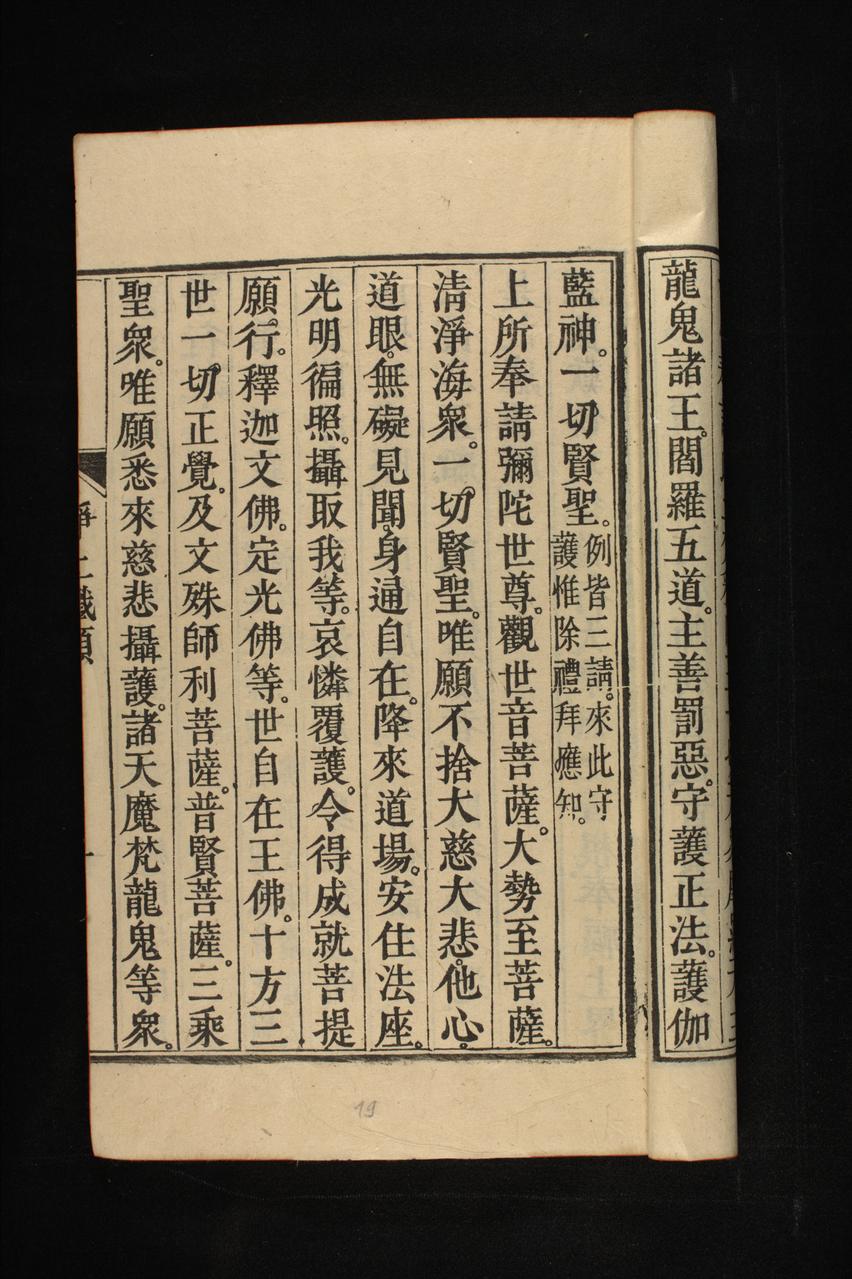 龍鬼諸王。閻羅五道。主善罰惡。守護正法。護伽
藍神。一切賢聖。例皆三請。來此守
護惟除禮拜應知。
上所奉請彌陀世尊。觀世音菩薩。大勢至菩薩。
清淨海衆。一切賢聖。唯願不捨大慈大悲。他心。
道眼。無礙見聞。身通自在。降來道場。安住法座。
光明徧照。攝取我等。哀憐覆護。令得成就菩提
願行。釋迦文佛。定光佛等。世自在王佛。十方三
世一切正覺。及文殊師利菩薩。普賢菩薩。三乘
聖衆。唯願悉來慈悲攝護。諸天魔梵龍鬼等衆。
19